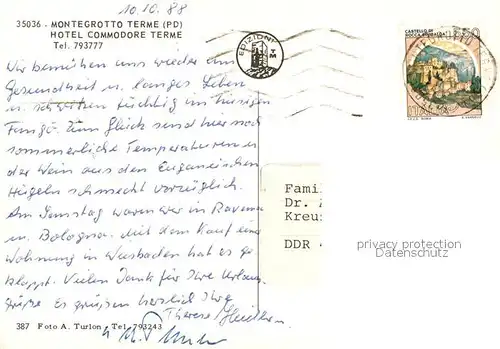 10.10.88
35036 - MONTEGROTTO TERME (PD)
HOTEL COMMODORE TERME
Tel. 793777
EDIZIONI
TM
CASTELLO DI
ROCCA
Wir bemühen uns wieder um
Gesundheit u. langes Leben
u. schwitzen tüchtig im hiesigen
Fango. Zum Glück sind hier noch
sommerliche Temperaturen u.
der Wein aus den Euganeischen
Hügeln schmeckt vorzüglich.
Am Samstag waren wir in Ravenna
u. Bologna. Mit dem Kauf einer
Wohnung in Wiesbaden hat es ge-
klappt. Vielen Dank für Ihre Urlaubs-
grüße. Es grüßen herzlich Ihre
Therese
Famil
Dr.
Kreu
DDR 4
privacy protection
Datenschutz
387 Foto A. Turlon Tel. 793243